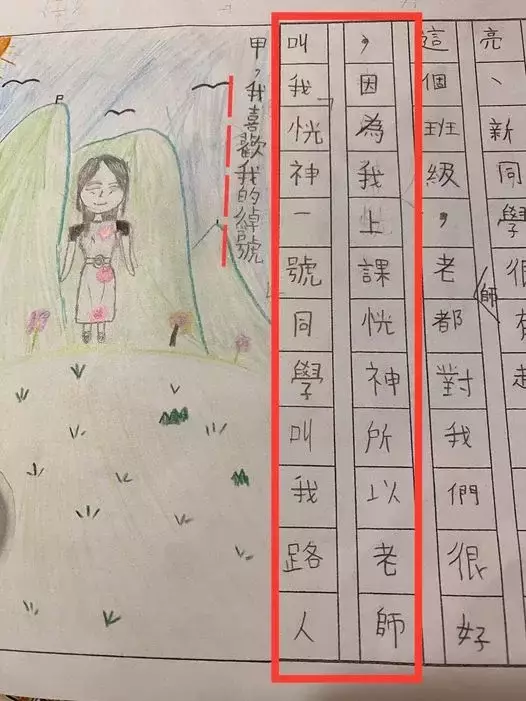 亮、新同學很
這個班級，老師都對我們很好
，因為我上課恍神所以老師
叫我「恍神一號同學叫我路人
甲，我喜歡我的綽號